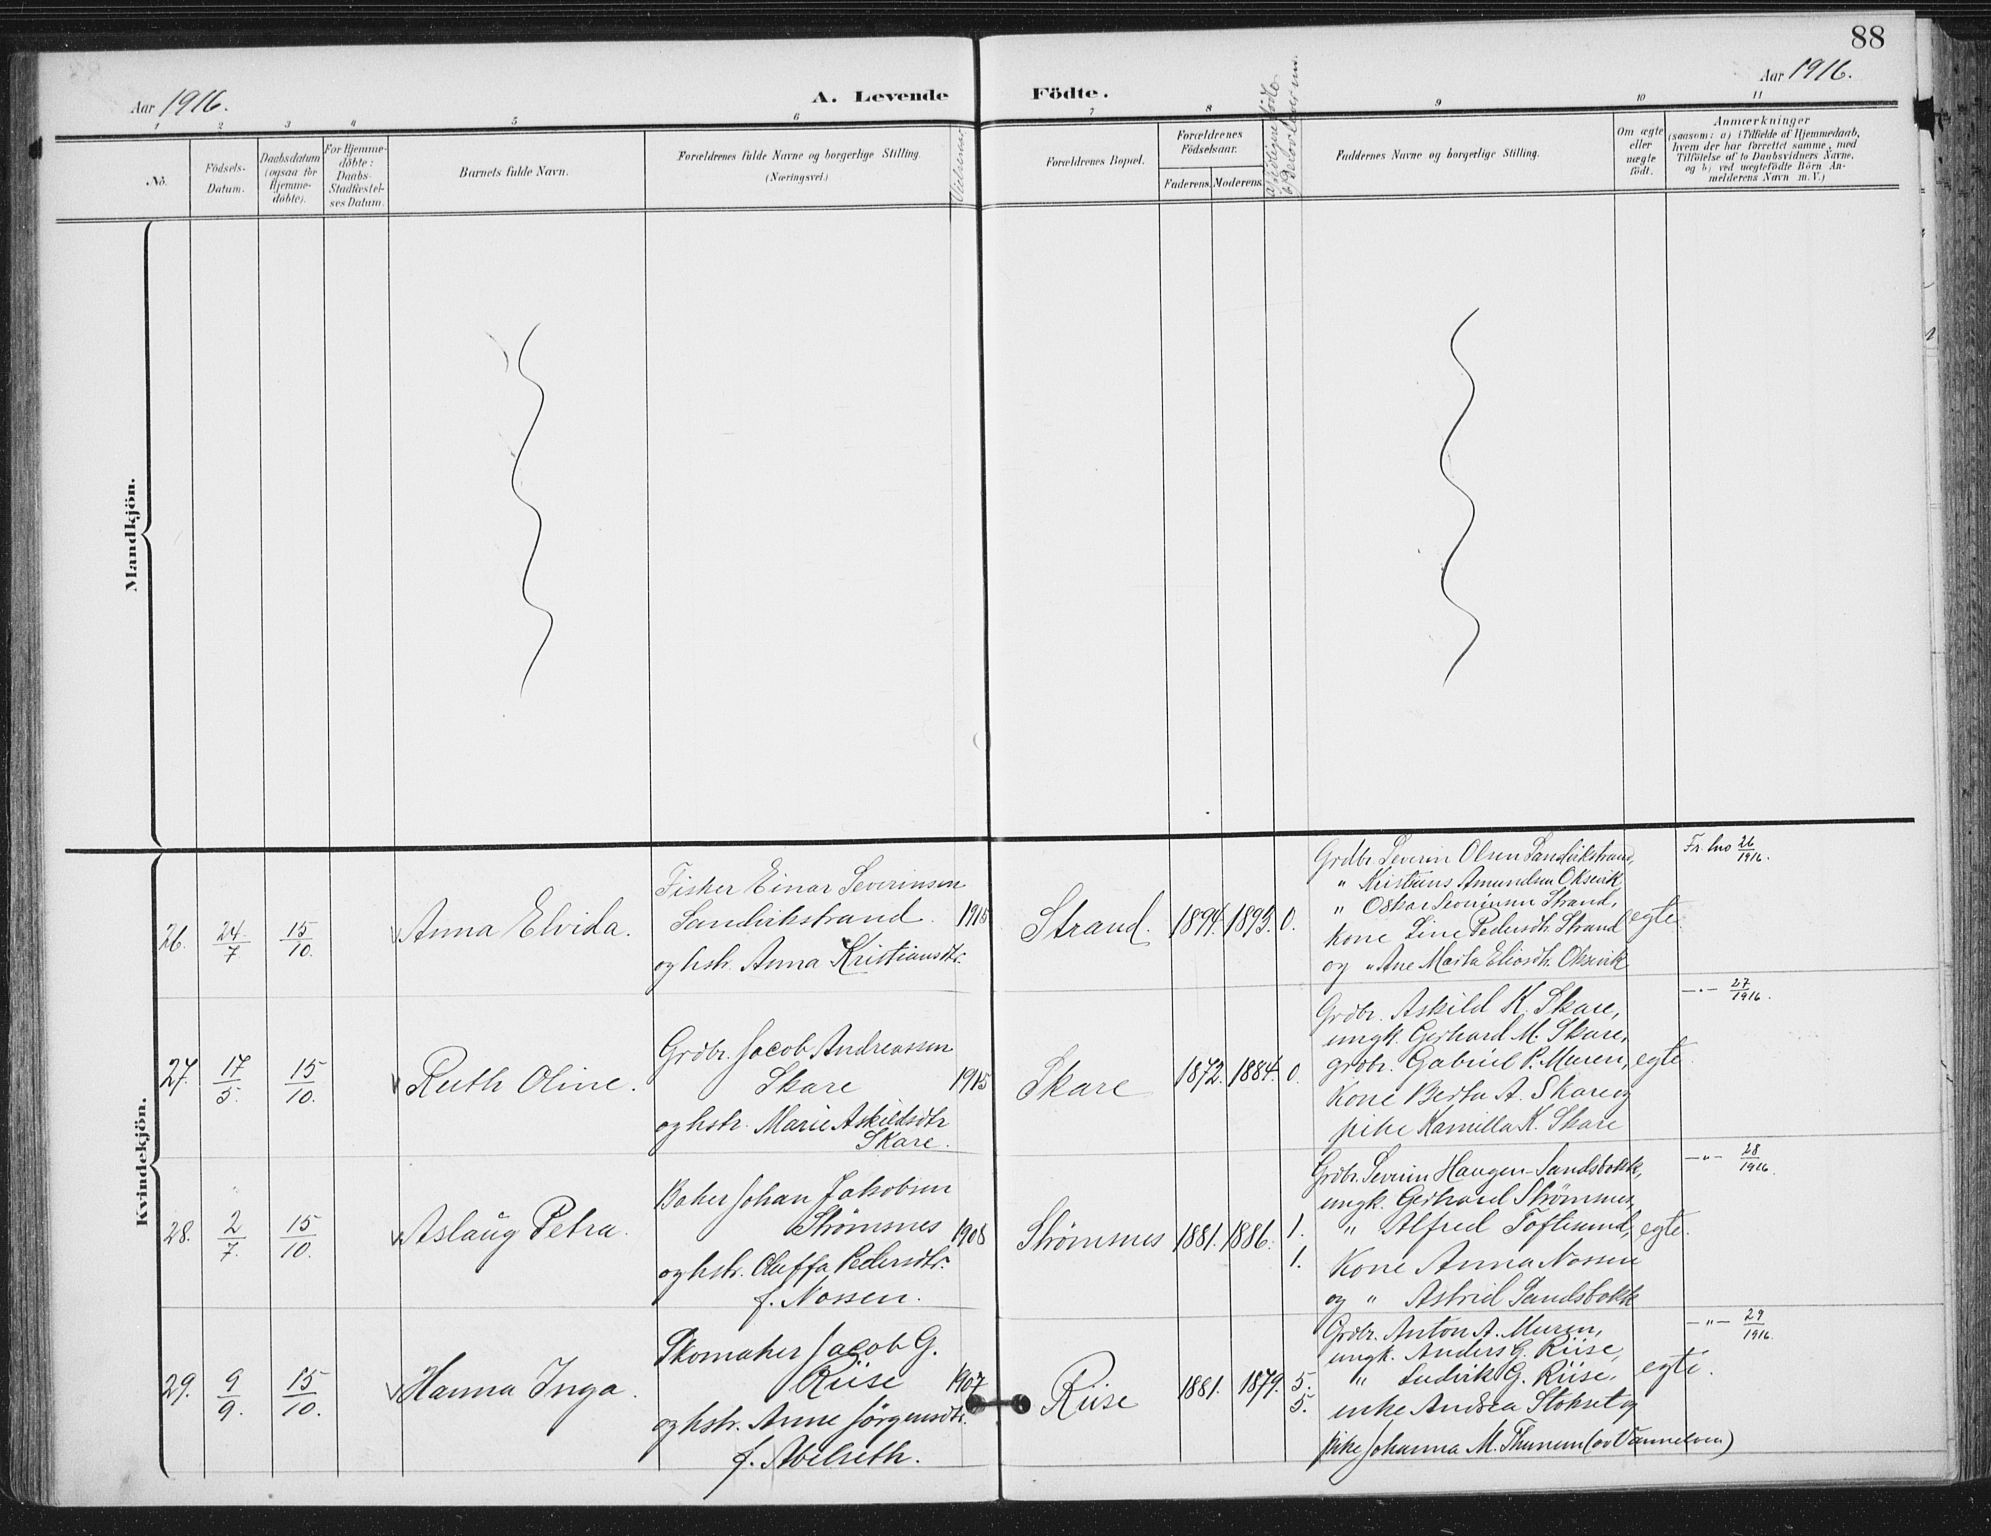 88
Aar 1916.
A. Levende Födte.
Aar 1916.
1 2 3 4 5 6 7 8 9 10 11
No.
Födsels-
Datum.
Daabsdatum
(ogsaa for
Hjemme-
döbte).
For Hjemme-
döbte:
Daabs-
Stadfæstel-
ses Datum.
Barnets fulde Navn.
Forældrenes fulde Navne og borgerlige Stilling.
(Næringsvei.)
Forældrenes Bopæl.
Forældrenes
Födselsaar.
Faderens. Moderens.
Faddernes Navne og borgerlige Stilling.
Om ægte
eller
uægte
födt.
Anmærkninger
(saasom: a) i Tilfælde af Hjemmedaab,
hvem der har forrettet samme, med
Tilföielse af to Daabsvidners Navne,
og b) ved uægtefödte Börn An-
melderens Navn m. V.)
Mandkjön.
Kvindekjön.
26. 24/7 15/10. Anna Elvida.
Fisker Einar Severinsen
Sandvikstrand. 1915
og hstr. Anna Kristiansdtr.
Strand. 1894. 1893. 0.
Grdbr. Severin Olsen Sandvikstrand,
" Kristians Amundsen Oksvik
" Oskar Severinsen Strand,
Kone Line Pedersdtr. Strand
og " Ane Marta Eliasdtr. Oksvik
egte.
Fr. no 26/1916.
27. 17/5. 15/10. Ruth Oline.
Grdbr. Jacob Andreassen
Skare 1915
og hstr. Marie Askildsdtr
Skare.
Skare 1872. 1884. 0.
Grdbr. Askild K. Skare,
ungk. Gerhard M. Skare,
grdbr. Gabriel P. Muren,
Kone Berta A. Skare og
pike Kamilla K. Skare
egte.
—"— 27/1916.
28. 2/7. 15/10. Aslaug Petra.
Baker Johan Jakobsen
Strømsnes 1908
og hstr. Oluffa Pedersdtr.
f. Nossen.
Strømsnes 1881. 1886. 1.
1.
Grdbr. Severin Haugen Sandsbakk,
ungk. Gerhard Strømsnes,
" Alfred Toftesund,
Kone Anna Nossen
og " Astrid Sandsbakk
egte.
—"— 28/1916.
29. 9/9. 15/10. Hanna Inga.
Skomaker Jacob G.
Riise 1907
og hstr. Anne Jørgensdtr.
f. Abelseth.
Riise 1881. 1879. 5.
5.
Grdbr. Anton A. Muren,
ungk. Anders G. Riise,
" Ludvik G. Riise,
enke Andrea Stokset og
pike Johanna M. Thunem (av Vannelven)
egte.
—"— 29/1916.